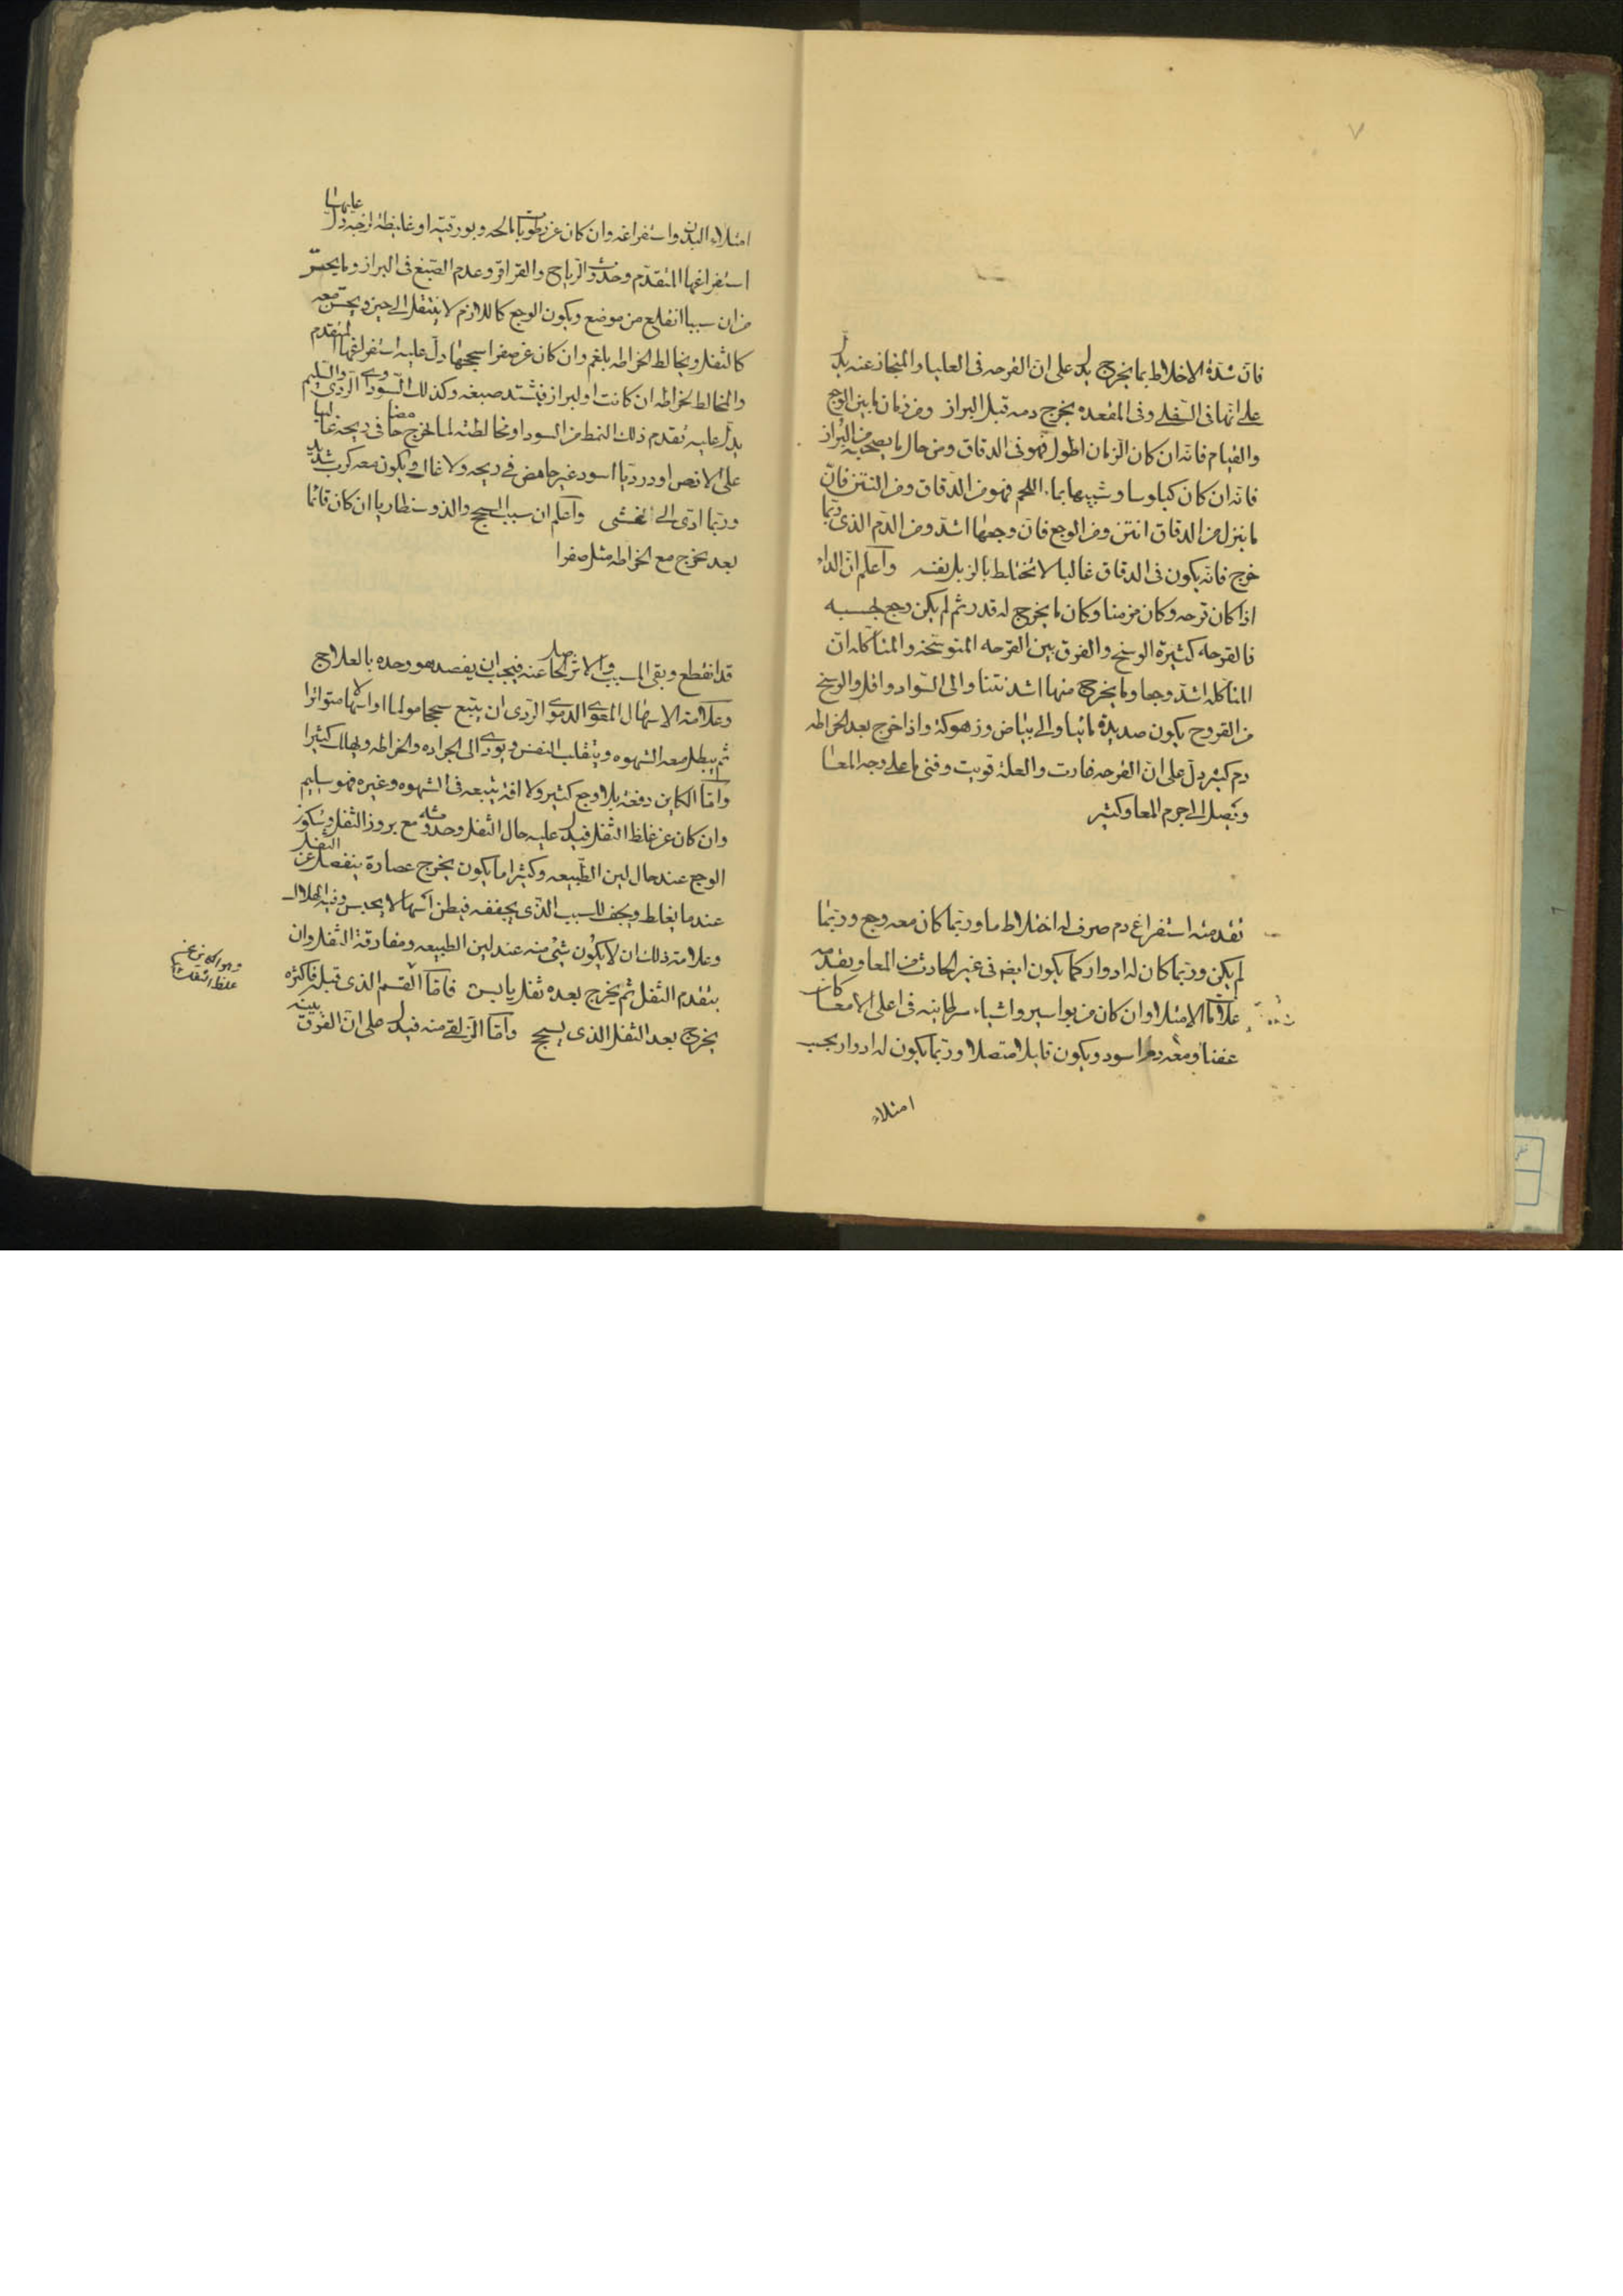 ٧
فان شدة الاختلاط بما يخرج يدل على ان القرحه فى العليا والمنحاز عنه يدل
على انها فى السفلى وفى المقعده يخرج دمه قبل البراز ومن زمان ما بين الوجع
والقيام فانه ان كان الزمان اطول فهو فى الدقاق ومن حال ما يصحبه من البراز
فانه ان كان كيلوسا وشبيها بماء اللحم فهو من الدقاق ومن النتن فان
ما ينزل من الدقاق انتن ومن الوجع فان وجعها اشد ومن الدم الذى ربما
خرج فانه يكون فى الدقاق غالبا لا يختلط بالزبل نفسه واعلم ان الداء
اذا كان قرحه وكان مزمنا وكان ما يخرج له قدر ثم لم يكن وجع بحسبه
فالقرحه كثيرة الوسخ والفرق بين القرحه المتوسخه والمتاكله ان
المتاكله اشد وجعا وما يخرج منها اشد نتنا والى السواد واقل والوسخ
من القروح يكون صديديه مائيا والى بياض وزهوكة واذا خرج بعد الخراطه
دم كثير دل على ان القرحه غارت والعلة قويت وفنى ما على وجه المعا
وتصل الى جرم المعا وكثير
تقدمته استفراغ دم صرف له اختلاط ما وربما كان معه وجع وربما
لم يكن وربما كان له ادوار كما يكون ايضا فى غير الحادث من المعا وتقدمه
علامات الامتلاء وان كان من بواسير واشباه سرطانيه فى اعلى الامعا كان
عفنا ومعه دم اسود ويكون قليلا متصلا وربما يكون له ادوار بحسب
امتلاء
امتلاء البدن واستفراغه وان كان عن رطوبات مالحه وبورقيه او غليظة لزجه دل عليها
استفراغها المتقدم وحدوث الرياح والقراقر وعدم الصبغ فى البراز وما يحس
من ان سببا انقلع من موضع ويكون الوجع كاللازم لا ينتقل الى حين ويحس معه
كالثقل ويخالط الخراطه بلغم وان كان عن صفرا سحجها دل عليه استفراغها المتقدم
والمخالط لخراطه ان كانت او لبراز فيشتد صبغه وكذلك السوداوى الردى والسليم
يدل عليه تقدم ذلك النمط من السودا ومخالطته لما يخرج حامضا فى ريحه غاليا
على الارض او درديا اسود غير حامض فى ريحه ولا غال ويكون معه كرب شديد
وربما ادى الى الغشى واعلم ان سبب السحج والذوسنطاريا ان كان قائما
بعد يخرج مع الخراطه مثل صفرا
قد انقطع وبقى المسبب والاثر الحاصل عنه فيجب ان يقصد هو وحده بالعلاج
وعلامة الاسهال المعوى الدموى الردى ان يتبع سحجا مولما او اسهالا متواترا
ثم يبطل معه الشهوه وينقلب النفس ويودى الى الجراده والخراطه ويهلك كثيرا
واما الكاين دفعة بلا وجع كثير ولا افة يتبعه فى الشهوه وغيره فهو سليم
وان كان عن غلظ الثفل فيدل عليه حال الثفل وحدوثه مع بروز الثفل وسكون
الوجع عند حال لين الطبيعه وكثيرا ما يكون يخرج عصارة ينفصل عن الثفل
عندما يغلظ ويجف للسبب الذى يجففه فيظن اسهالا يحبس وفيه الهلاك
وعلامة ذلك ان لا يكون شى منه عند لين الطبيعه ومفارقة الثفل وان
يتقدم الثفل ثم يخرج بعده ثفل يابس فاما القسم الذى قبل فاكثره
يخرج بعد الثفل الذى يسحج واما الزلقى منه فيدل على ان الفرق بينه
وهو الكاين عن
غلظ الثفل